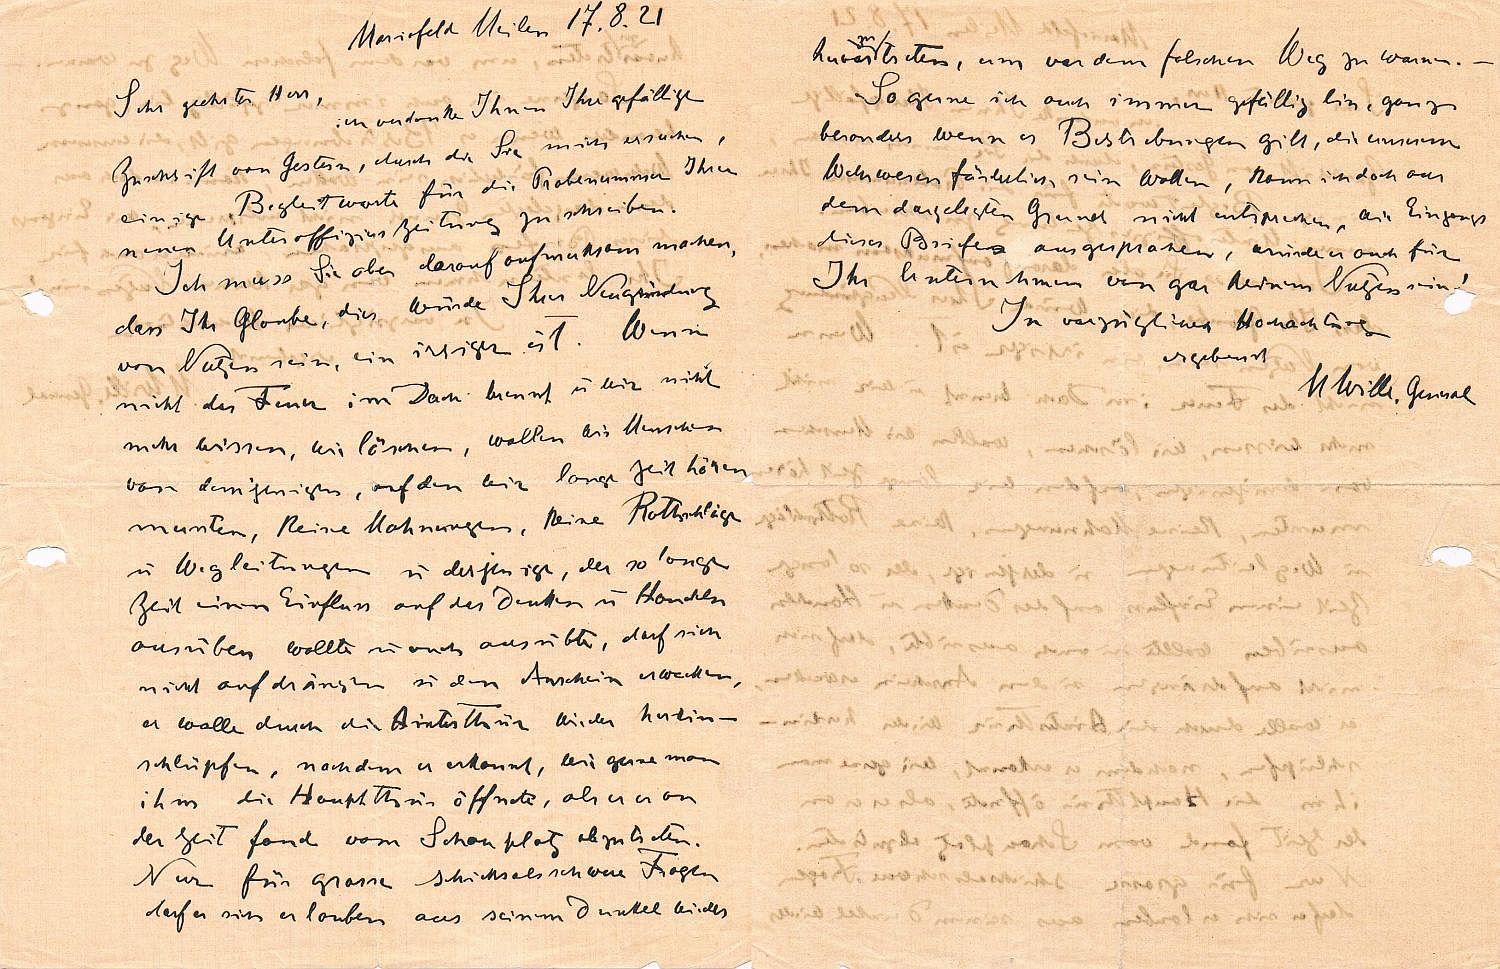 Mariafeld Meilen 17.8.21
Sehr geehrter Herr,
ich verdanke Ihnen Ihre gefällige
Zuschrift von Gestern, durch die Sie mich ersuchen,
einige Begleitworte für die Probenummer Ihrer
neuen Unteroffiziers Zeitung zu schreiben.
Ich muss Sie aber darauf aufmerksam machen,
dass Ihr Glaube, dies würde Ihrer Neugründung
von Nutzen sein, ein irriger ist. Wenn
nicht das Feuer im Dach brennt u wir nicht
mehr wissen, wie löschen, wollen wir Menschen
von demjenigen, auf den wir lange Zeit hören
mussten, keine Mahnungen, keine Rathschläge
u Wegleitungen u derjenige, der so lange
Zeit einen Einfluss auf das Denken u Handeln
ausüben wollte u auch ausübte, darf sich
nicht aufdrängen u den Anschein erwecken,
er wolle durch die Hinterthür wieder herein-
schlüpfen, nachdem er erkannt, wie gerne man
ihm die Hauptthür öffnete, als er es an
der Zeit fand vom Schauplatz abzutreten.
Nur für grosse schicksalsschwere Fragen
darf er sich erlauben aus seinem Dunkel wieder
hervorzutreten, um vor dem falschen Weg zu warnen. —
So gerne ich auch immer gefällig bin, ganz
besonders wenn es Bestrebungen gilt, die unserm
Wehrwesen förderlich sein wollen, kann ich doch aus
dem dargelegten Grund nicht entsprechen, wie Eingangs
dieses Briefes ausgesprochen, würde es auch für
Ihr Unternehmen von gar keinem Nutzen sein!
In vorzüglicher Hochachtung
ergebenst
U Wille, General